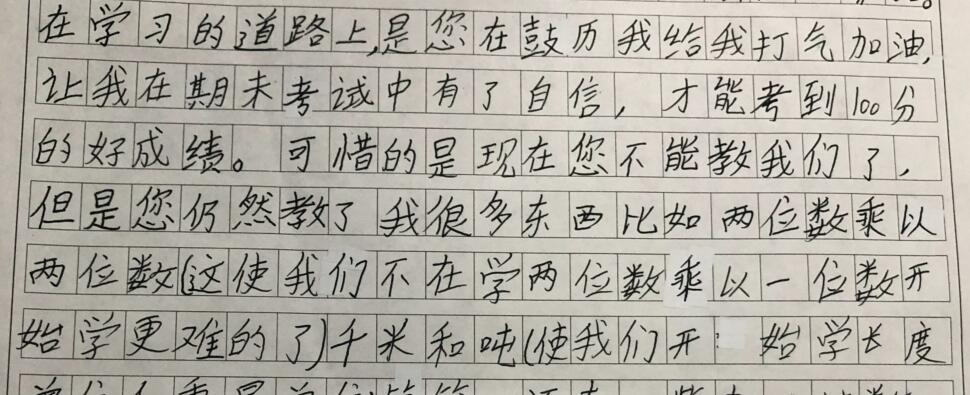 在学习的道路上,是您在鼓历我给我打气加油,
让我在期未考试中有了自信，才能考到100分
的好成绩。可惜的是现在您不能教我们了，
但是您仍然教了我很多东西比如两位数乘以
两位数(这使我们不在学两位数乘以一位数开
始学更难的了)千米和吨(使我们开始学长度